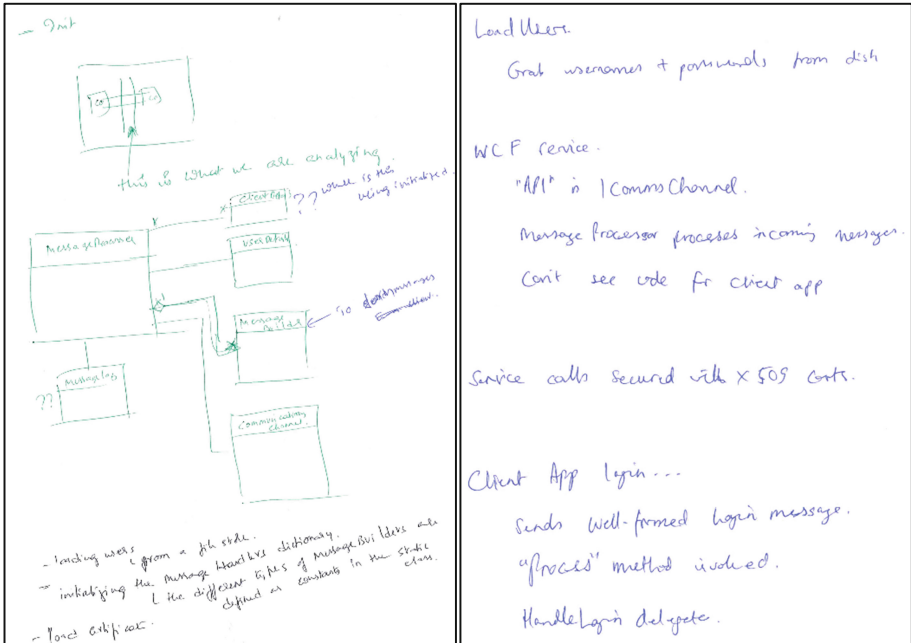 - Init
this is what we are analyzing
?? where is this
being initialized.
Message
??
Message
Builder
Communication
Channel.
- loading users from a file store.
- initializing the message handlers dictionary.
the different types of MessageBuilders are
defined as constants in the static
class.
- load certificate.
Load Users.
Grab usernames + passwords from disk
WCF service.
"API" is ICommsChannel.
Message Processor processes incoming messages.
Can't see code for client app
Service calls secured with X509 certs.
Client App login...
Sends well-formed login message.
"Process" method invoked.
HandleLogin delegate.